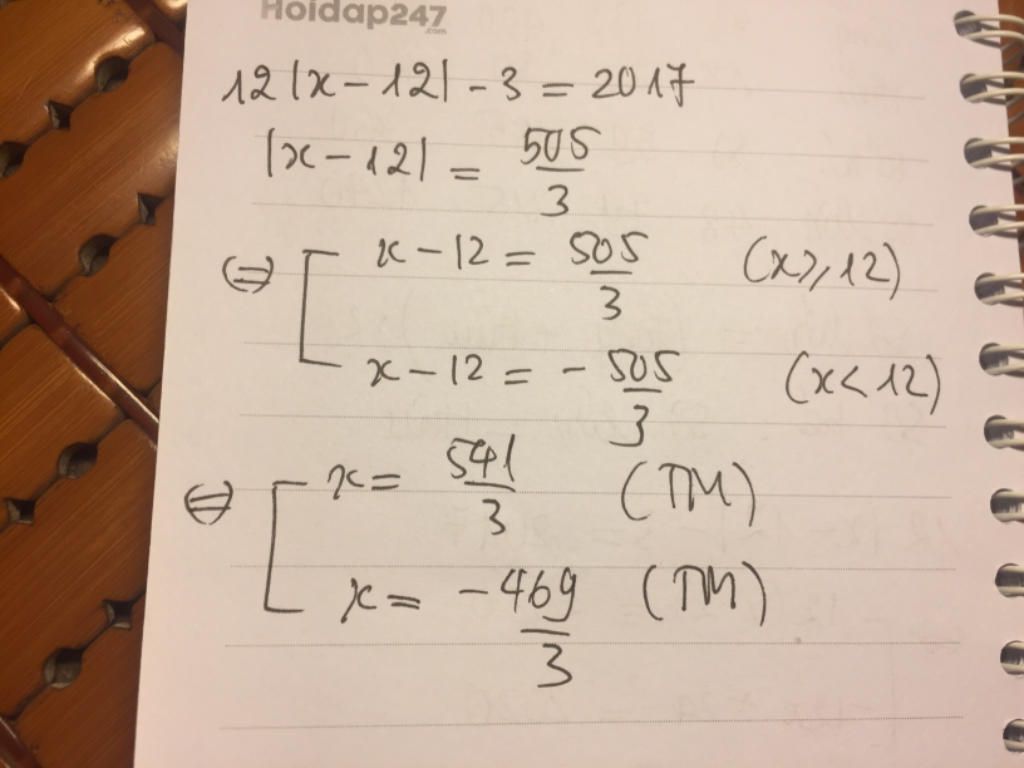 Hoidap247
.com
12|x-12| - 3 = 2017
|x-12| = 505/3
⇔ [ x-12 = 505/3 (x≥12)
x-12 = -505/3 (x<12)
⇔ [ x = 541/3 (TM)
x = -469/3 (TM)